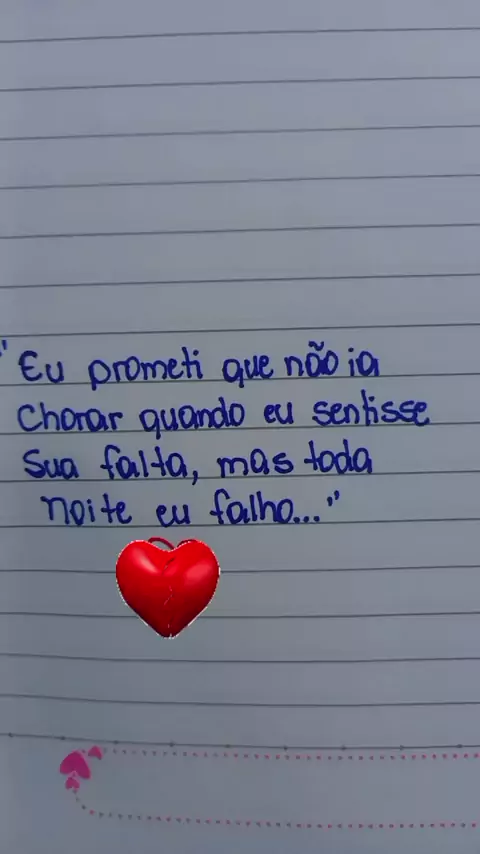 "Eu prometi que não ia
Chorar quando eu sentisse
Sua falta, mas toda
noite eu falho..."